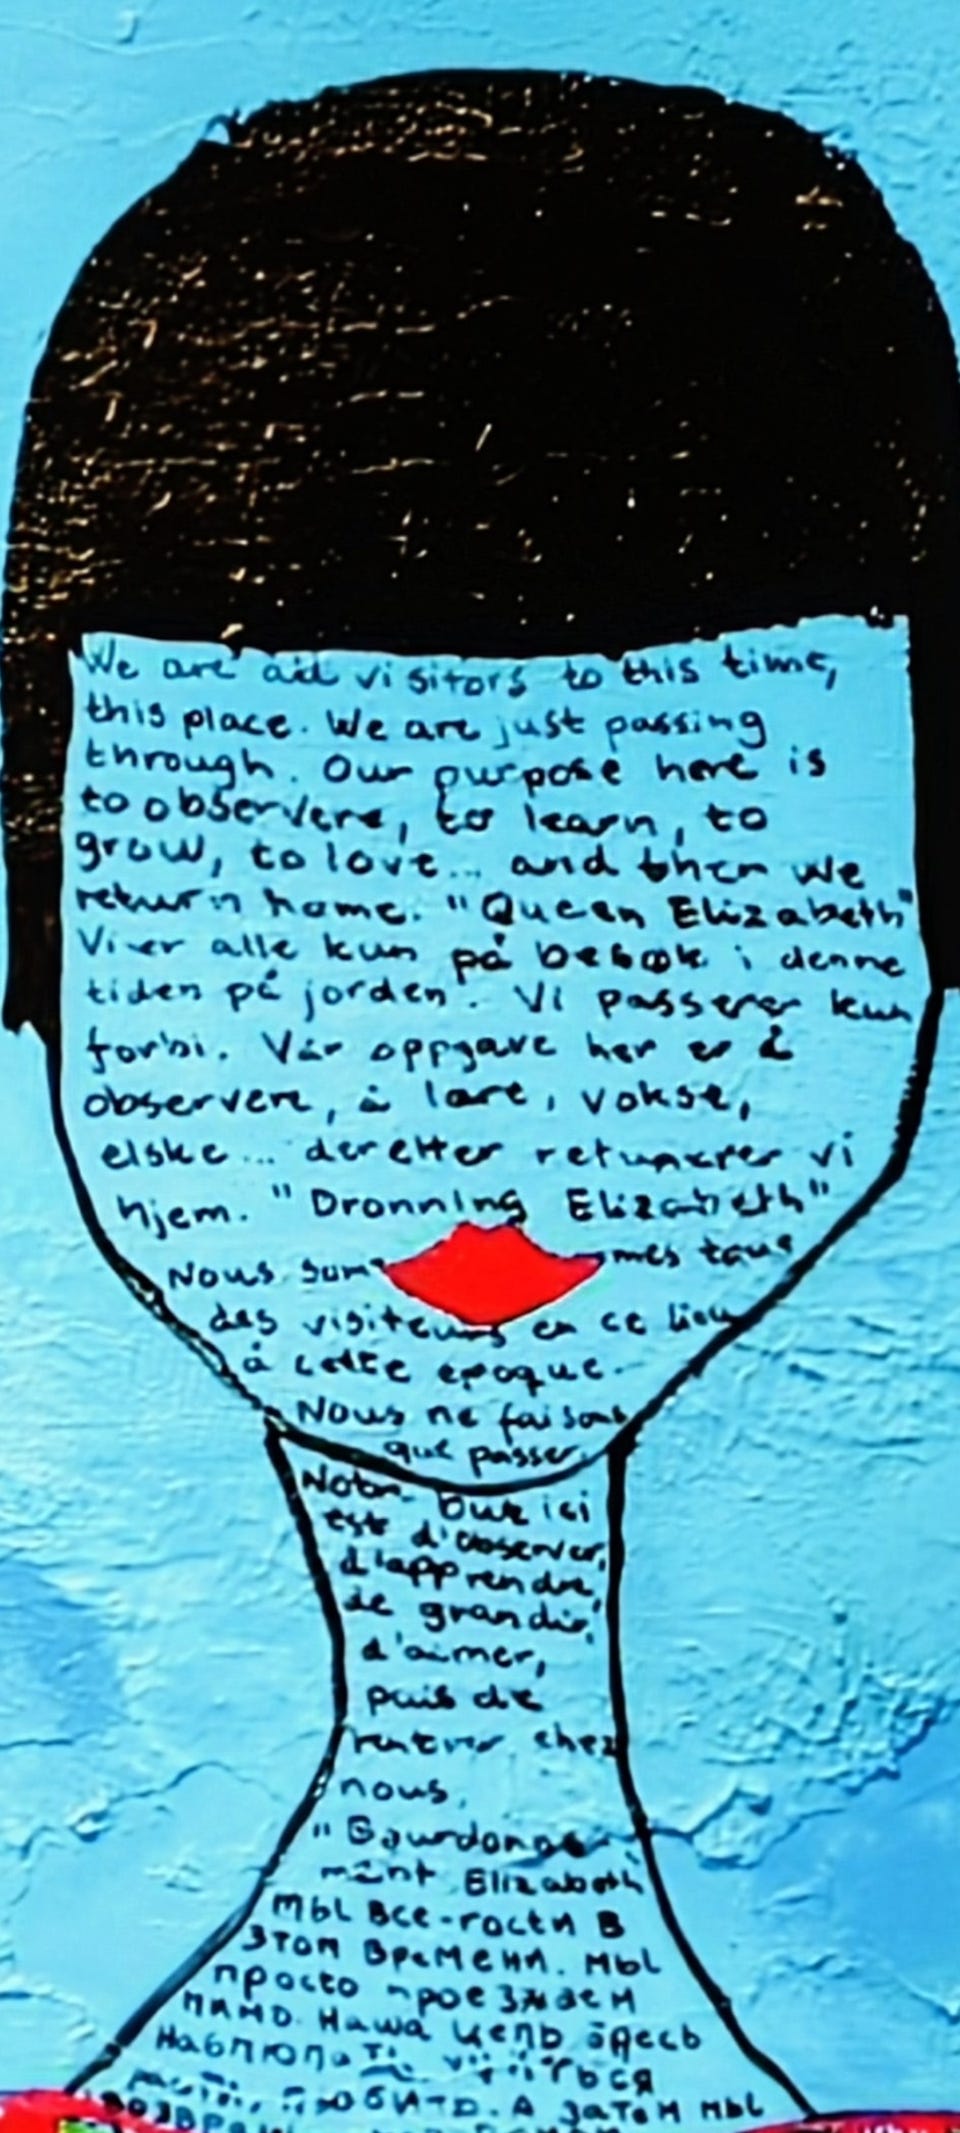 We are all visitors to this time,
this place. We are just passing
through. Our purpose here is
to observere, to learn, to
grow, to love... and then we
return home. "Queen Elizabeth"
Vi er alle kun på besøk i denne
tiden på jorden. Vi passerer kun
forbi. Vår oppgave her er å
observere, å lære, vokse,
elske... deretter returnerer vi
hjem. "Dronning Elizabeth"
Nous som mes tous
des visiteurs en ce lieu
à cette époque.
Nous ne faisons
que passer.
Notre but ici
est d'observer,
d'apprendre,
de grandir,
d'aimer,
puis de
rentrer chez
nous.
ment Elizabeth
мы все-гости в
этом времени. мы
просто проезжаем
мимо. Наша цель здесь
А затем мы